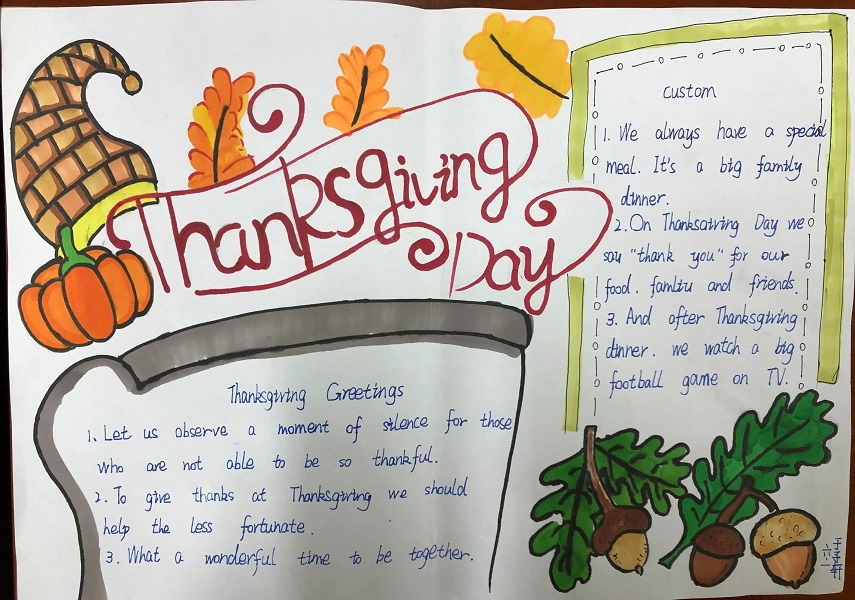 Thanksgiving
Day
Custom
1. We always have a special
meal. It's a big family
dinner.
2. On Thanksgiving Day we
say "thank you" for our
food. family and friends.
3. And after Thanksgiving
dinner. we watch a big
football game on TV.
Thanksgiving Greetings
1. Let us observe a moment of silence for those
who are not able to be so thankful.
2. To give thanks at Thanksgiving we should
help the less fortunate.
3. What a wonderful time to be together.